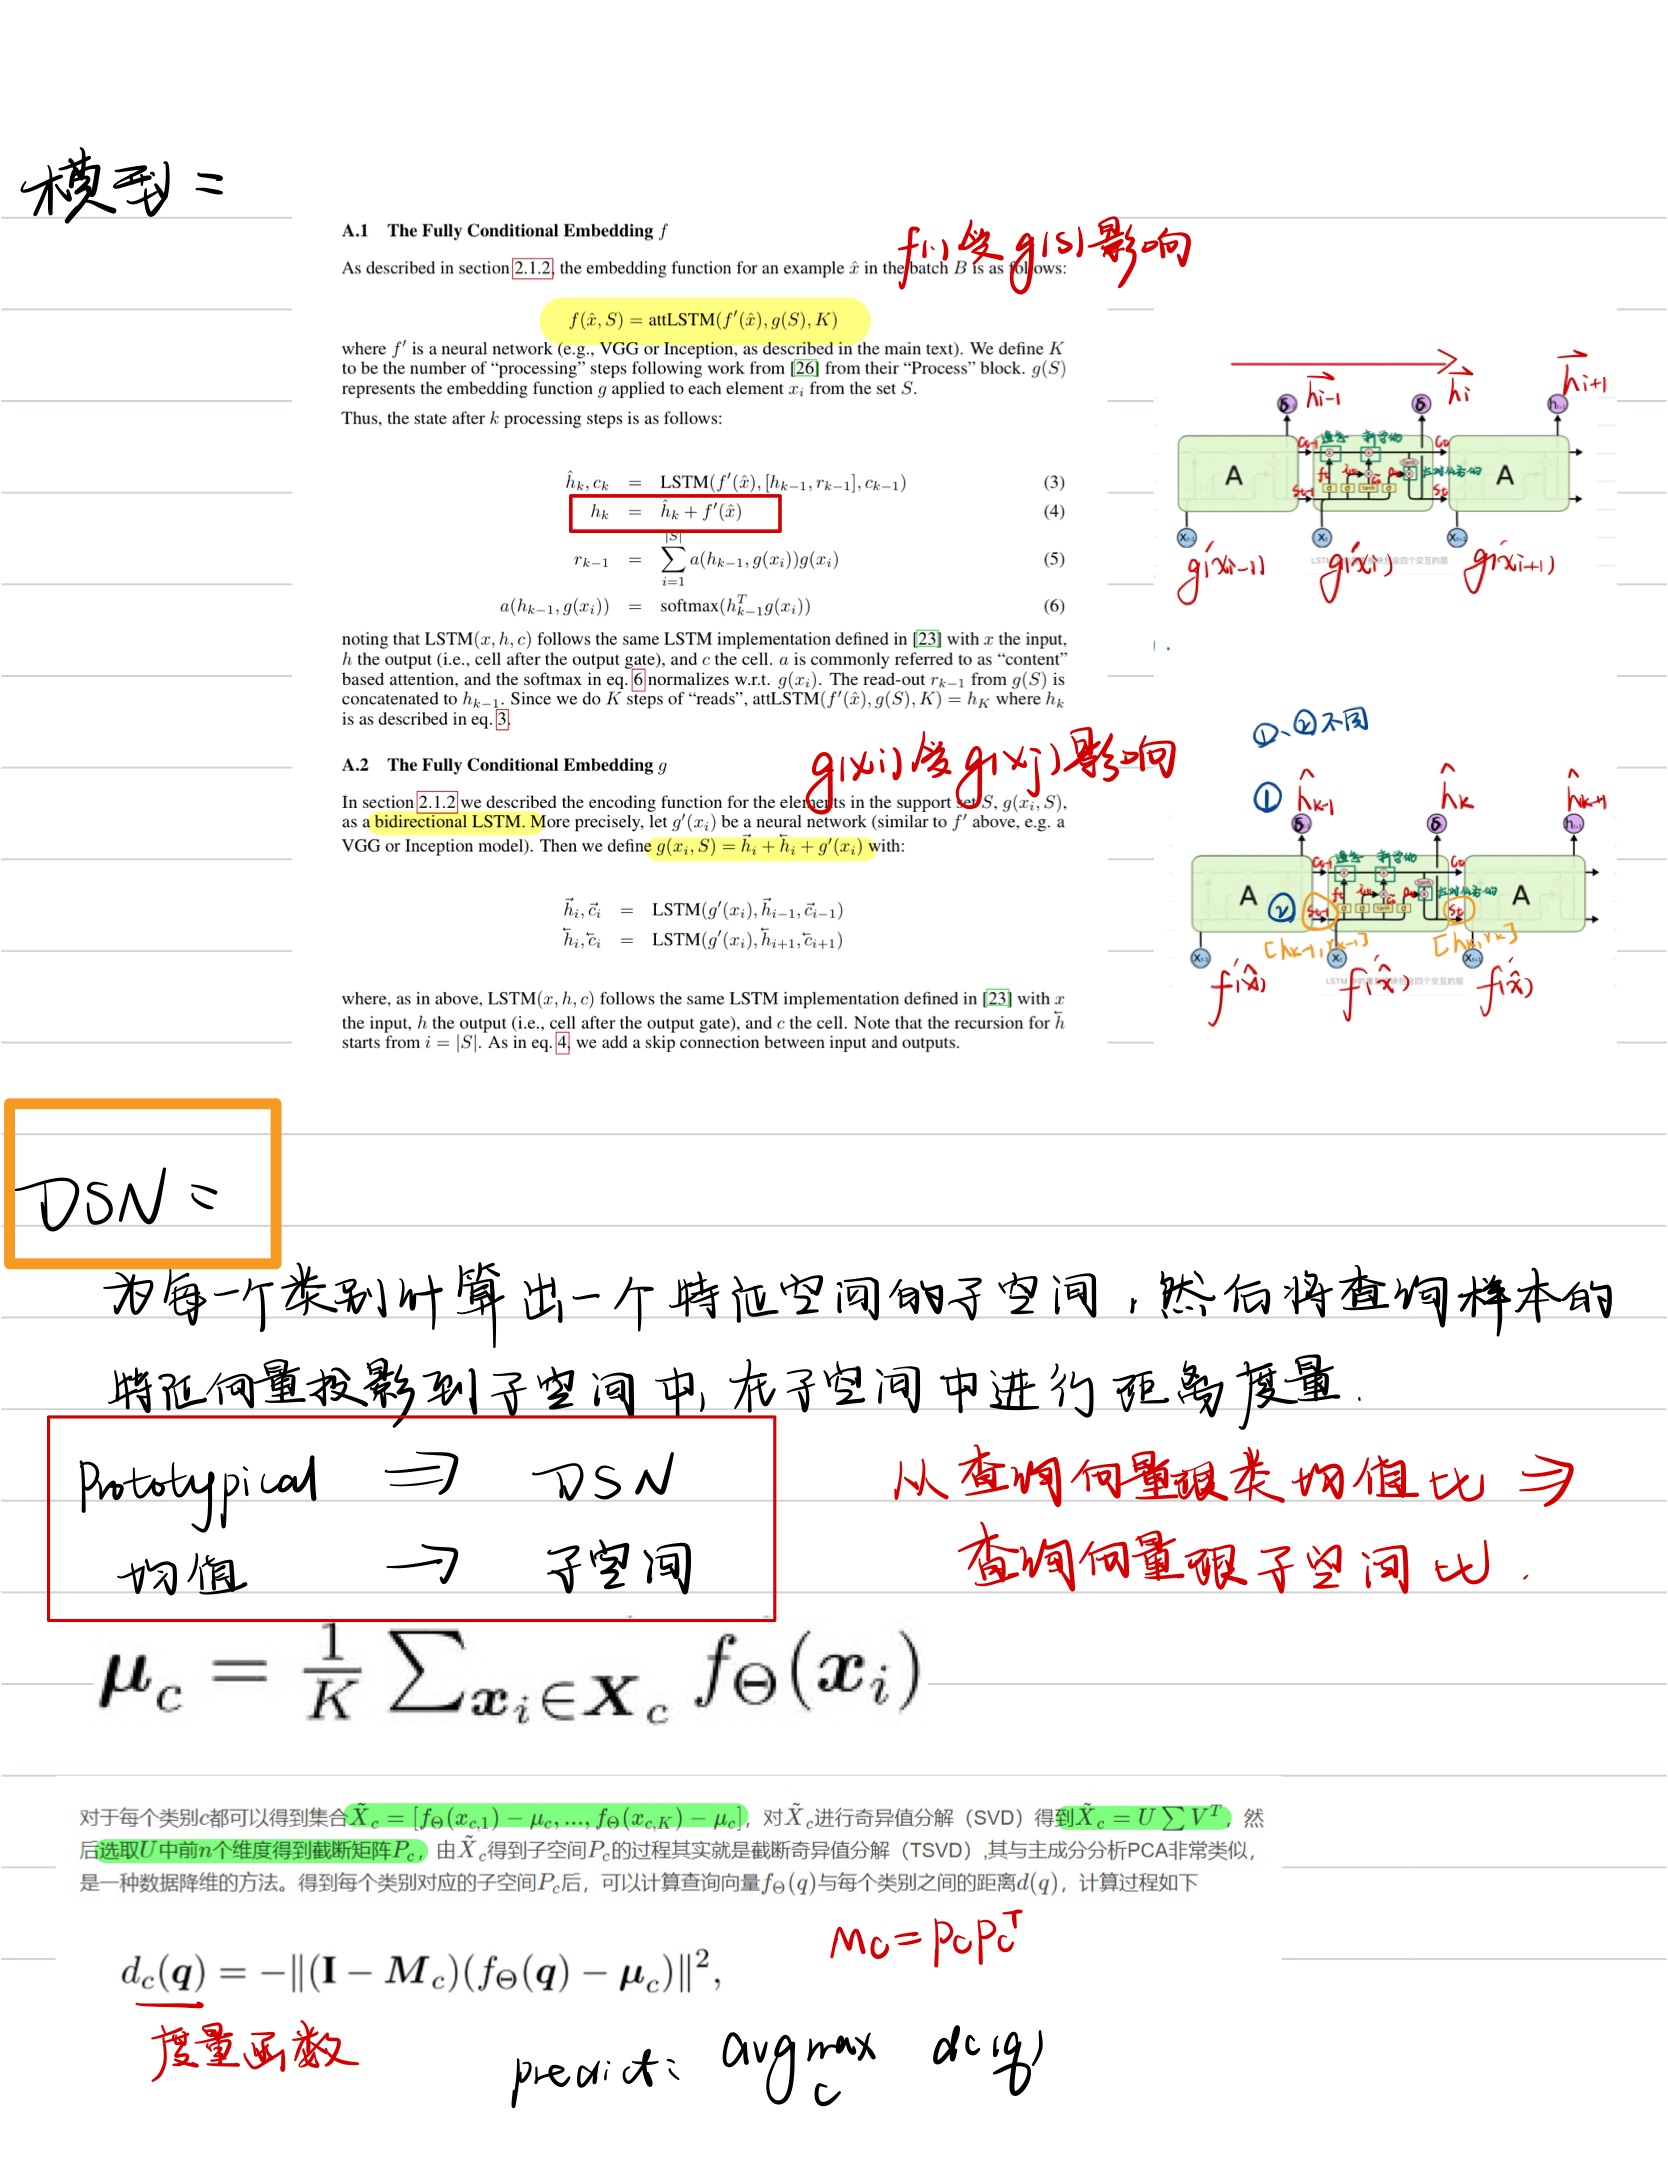 模型：
A.1 The Fully Conditional Embedding f
f(·)受g(S)影响
As described in section 2.1.2, the embedding function for an example x̂ in the batch B is as follows:
f(x̂, S) = attLSTM(f′(x̂), g(S), K)
where f′ is a neural network (e.g., VGG or Inception, as described in the main text). We define K
to be the number of “processing” steps following work from [26] from their “Process” block. g(S)
represents the embedding function g applied to each element xᵢ from the set S.
Thus, the state after k processing steps is as follows:
ĥₖ, cₖ = LSTM(f′(x̂), [hₖ₋₁, rₖ₋₁], cₖ₋₁) (3)
hₖ = ĥₖ + f′(x̂) (4)
rₖ₋₁ = ∑_{i=1}^{|S|} a(hₖ₋₁, g(xᵢ))g(xᵢ) (5)
a(hₖ₋₁, g(xᵢ)) = softmax(hᵀₖ₋₁g(xᵢ)) (6)
noting that LSTM(x, h, c) follows the same LSTM implementation defined in [23] with x the input,
h the output (i.e., cell after the output gate), and c the cell. a is commonly referred to as “content”
based attention, and the softmax in eq. 6 normalizes w.r.t. g(xᵢ). The read-out rₖ₋₁ from g(S) is
concatenated to hₖ₋₁. Since we do K steps of “reads”, attLSTM(f′(x̂), g(S), K) = h_K where hₖ
is as described in eq. 3.
g(xi)受g(xj)影响
A.2 The Fully Conditional Embedding g
In section 2.1.2 we described the encoding function for the elements in the support set S, g(xᵢ, S),
as a bidirectional LSTM. More precisely, let g′(xᵢ) be a neural network (similar to f′ above, e.g. a
VGG or Inception model). Then we define g(xᵢ, S) = h⃗ᵢ + h⃖ᵢ + g′(xᵢ) with:
h⃗ᵢ, c⃗ᵢ = LSTM(g′(xᵢ), h⃗ᵢ₋₁, c⃗ᵢ₋₁)
h⃖ᵢ, c⃖ᵢ = LSTM(g′(xᵢ), h⃖ᵢ₊₁, c⃖ᵢ₊₁)
where, as in above, LSTM(x, h, c) follows the same LSTM implementation defined in [23] with x
the input, h the output (i.e., cell after the output gate), and c the cell. Note that the recursion for h⃖
starts from i = |S|. As in eq. 4, we add a skip connection between input and outputs.
h⃗i-1 h⃗i h⃗i+1
A A
g′(xi-1) g′(xi) g′(xi+1)
①、②不同
① ĥk-1 ĥk ĥk+1
A ② A
[hk-1, rk-1] [hk, rk]
f′(x̂) f′(x̂) f′(x̂)
DSN：
为每一个类别计算出一个特征空间的子空间，然后将查询样本的
特征向量投影到子空间中，在子空间中进行距离度量.
Prototypical ⇒ DSN
均值 → 子空间
从查询向量跟类均值比 ⇒
查询向量跟子空间比.
μ_c = 1/K ∑_{xᵢ∈X_c} f_Θ(xᵢ)
对于每个类别c都可以得到集合X̃_c = [f_Θ(x_{c,1}) − μ_c, ..., f_Θ(x_{c,K}) − μ_c]，对X̃_c进行奇异值分解（SVD）得到X̃_c = U∑Vᵀ，然
后选取U中前n个维度得到截断矩阵P_c，由X̃_c得到子空间P_c的过程其实就是截断奇异值分解（TSVD）,其与主成分分析PCA非常类似，
是一种数据降维的方法。得到每个类别对应的子空间P_c后，可以计算查询向量f_Θ(q)与每个类别之间的距离d(q)，计算过程如下
Mc = PcPcᵀ
d_c(q) = −‖(I − M_c)(f_Θ(q) − μ_c)‖²,
度量函数
predict: argmax dc(q)
c